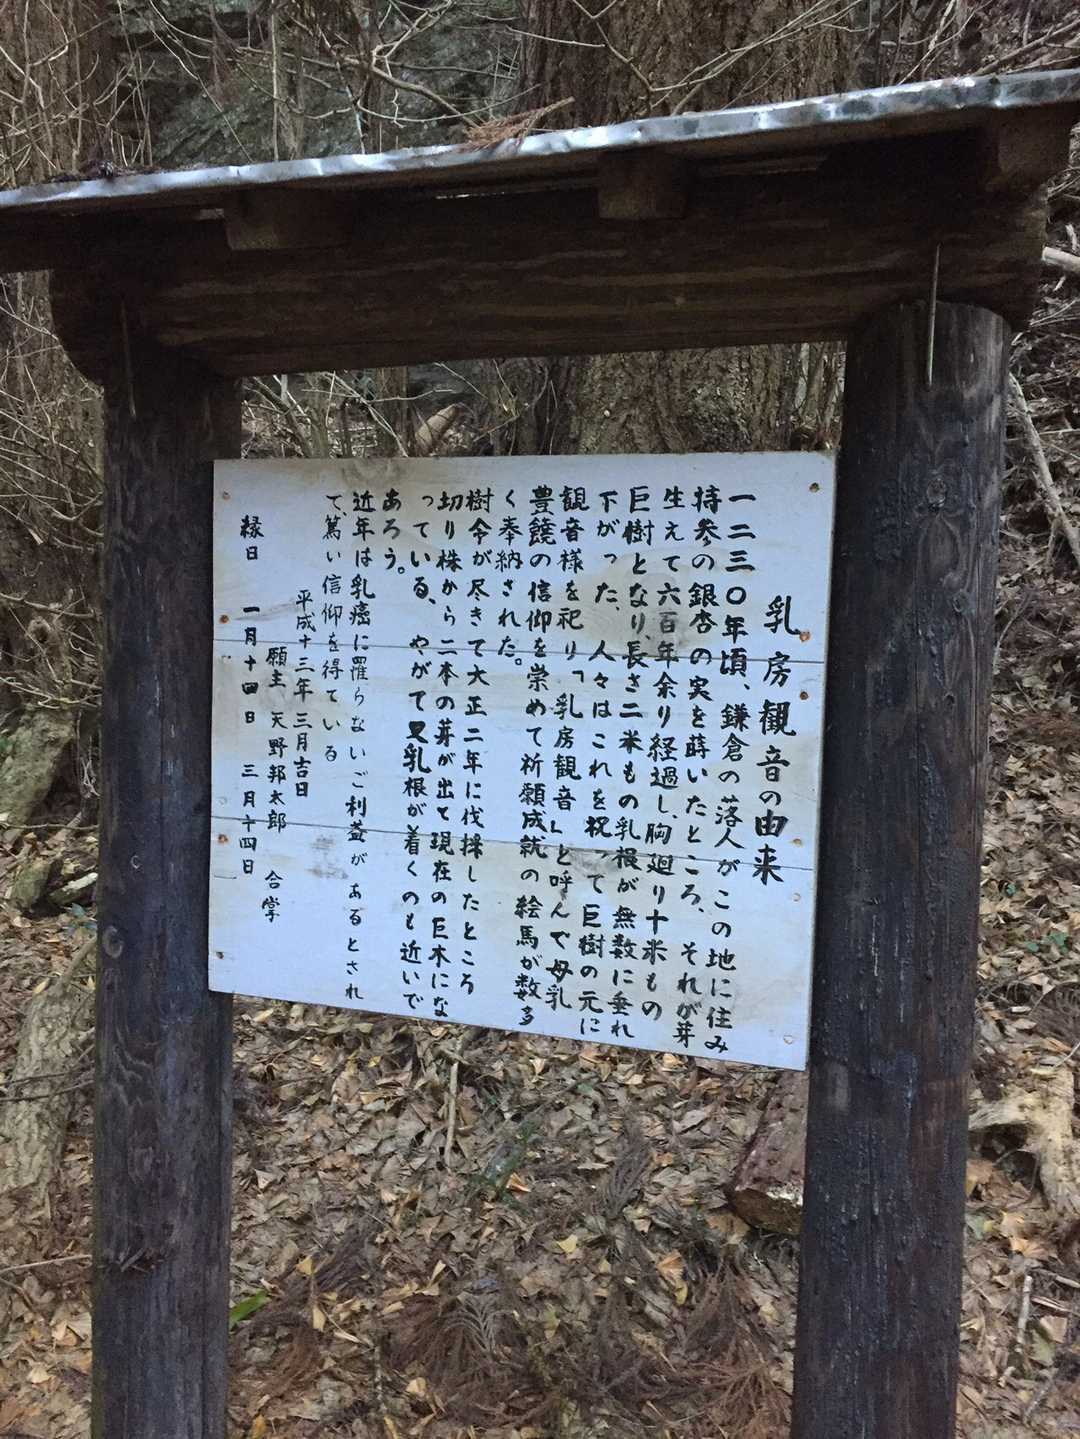 乳房観音の由来
一二三〇年頃、鎌倉の落人がこの地に住み
持参の銀杏の実を蒔いたところ、それが芽
生えて六百年余り経過し、胸廻り十米もの
巨樹となり、長さ二米もの乳根が無数に垂れ
下がった、人々はこれを祝って巨樹の元に
観音様を祀り「乳房観音」と呼んで母乳
豊饒の信仰を崇めて祈願成就の絵馬が数多
く奉納された。
樹令が尽きて大正二年に伐採したところ
切り株から二本の芽が出て現在の巨木にな
っている、やがて又乳根が着くのも近いで
あろう。
近年は乳癌に罹らないご利益があるとされ
て、篤い信仰を得ている
平成十三年三月吉日
願主 天野邦太郎 合掌
縁日 一月十四日 三月十四日